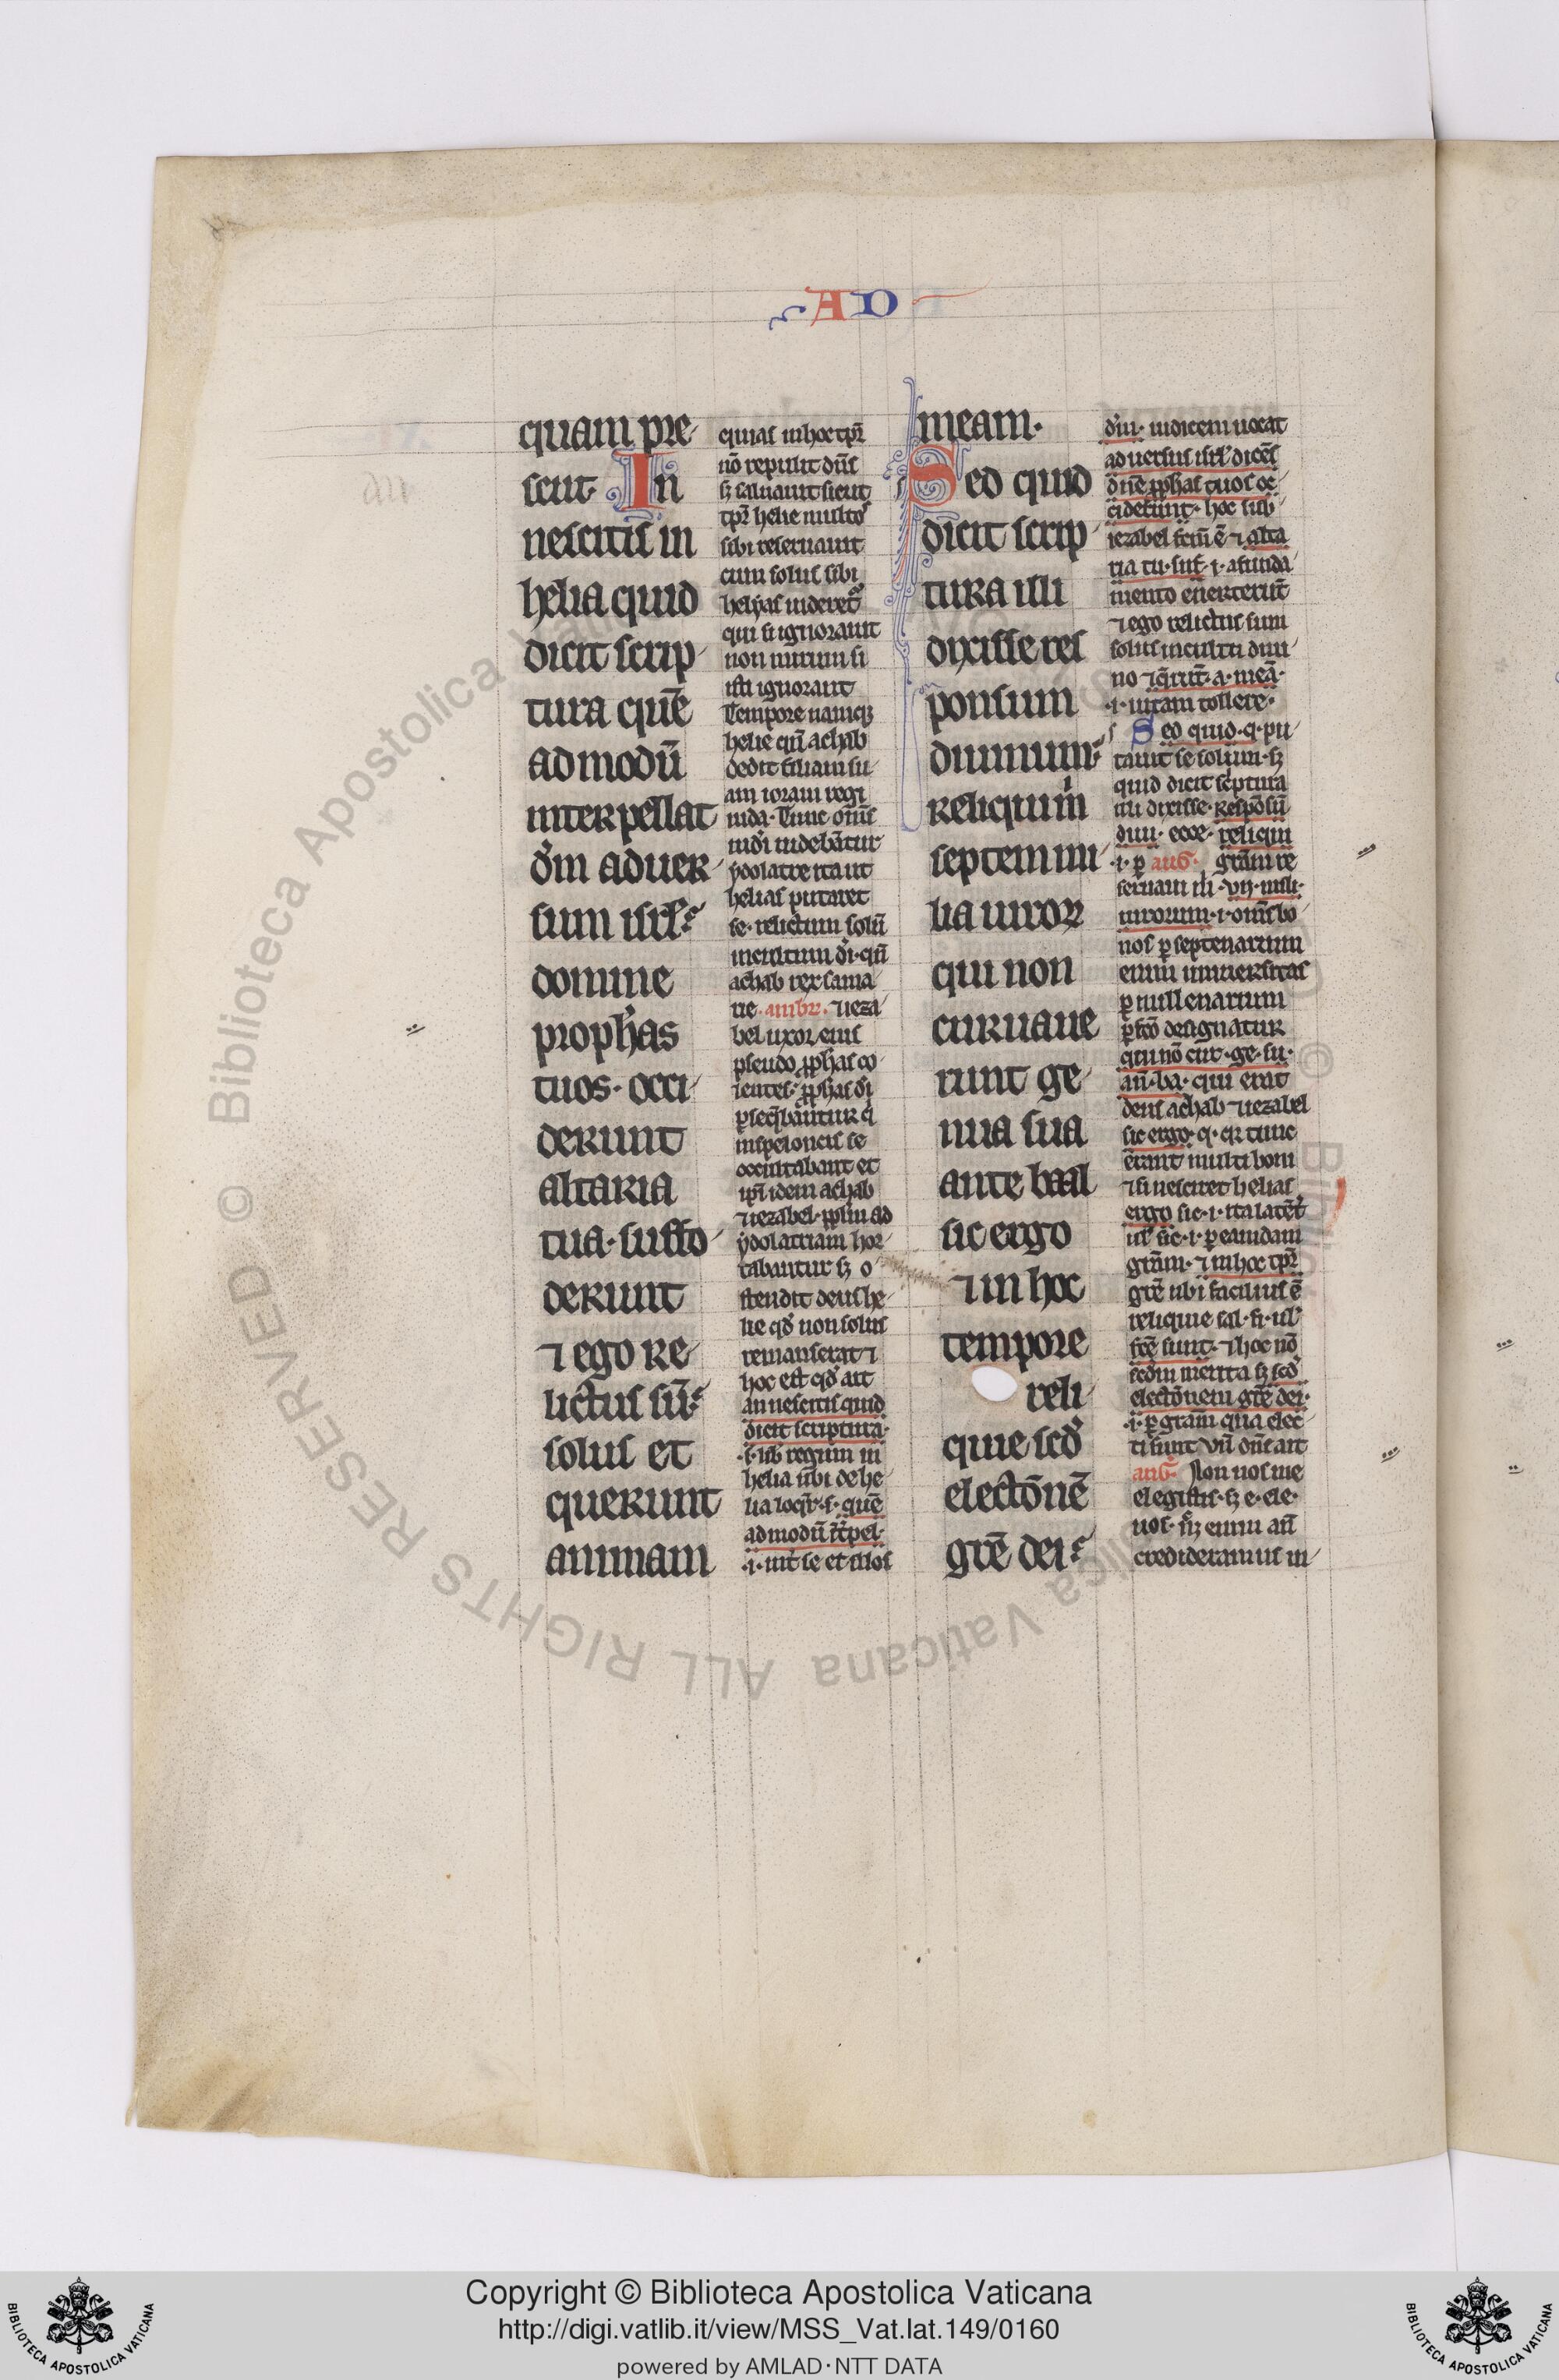 AD
quam pre
sciit. In
nescitis in
helia quid
dicit scrip
tura quē
admodū
interpellat
dm̄ aduer
sum isrl̄
domine
prophas
tuos. occi
derunt
altaria
tua. suffo
derunt
⁊ ego re
lictus sū
solus et
querunt
animam
quias in hoc tpr̄
nō repulit dn̄s
sȝ saluauit sicut
tpr̄ helie multos
sibi reseruauit
cum solus sibi
helyas uideret̄
qui si ignorauit
non mirum si
isti ignorant
Tempore namqȝ
helie qn̄ achab
dedit filiam su
am ioram regi
iuda. Tunc om̄s
iudi uidebātur
ydolatre ita ut
helias putaret
se. relictum solū
in cultum di. qn̄
achab rex sama
rie. ambr. ⁊ ieza
bel uxor eius
pseudo ꝓphas co
lentes. ꝓphas di
ꝑseqbantur q
in speloncis se
occultabant et
ip̄i idem achab
⁊ iezabel. pplm ad
ydolatriam hor
tabantur sȝ o
stendit deus he
lie qd non solus
remanserat ⁊
hoc est qd ait
an nescitis quid
dicit scriptura.
.s. lib regum in
helia ubi de he
lia loqr. s. quē
admodū ītꝑpel.
.i. int se et illos
meam.
Sed quid
dicit scrip
tura illi
dixisse res
ponsum
diuinum
Reliqui m
septem mi
lia uiroꝝ
qui non
curuaue
runt ge
nua sua
ante baal
sic ergo
⁊ in hoc
tempore
reli
quie scd
electōnē
grē dei
dm̄. iudicem uocat
aduersus isrl̄ dicēs
dn̄e ꝓphas tuos oc
ciderunt. hoc sub
iezabel fcm̄ ē ⁊ alta
ria tu. suf. i. a funda
mento euerterūt
⁊ ego relictus sum
solus in cultu diui
no ⁊ q̄rūt. a. meā.
.i. uitam tollere.
Sed quid. q. pu
tauit se solum. sȝ
quid dicit scptura
illi dixisse. Respōsū
diui. ecce. reliqui
.i. ꝑ aug. grām re
seruam m. vij. mili.
uirorum. i. om̄s bo
nos ꝑ septenarium
enim uniuersitas
ꝑ millenarium
ꝑfcō designatur
qui nō cur. ge. su.
an̄. ba. qui erat
deus achab ⁊ iezabel
sic ergo. q. er tunc
erant multi boni
⁊ si nesciret helias
ergo sic. i. ita latēt
ul̄ sic. i. ꝑ eandam
grām. ⁊ in hoc tpr̄
grē ubi facilius ē
reliquie sal. fi. ul̄
fcē sunt. ⁊ hoc nō
scdm merita sȝ scd
electōnem grē dei.
.i. ꝑ grām qua elec
ti sunt vn̄ dn̄s ait
aug. Non uos me
elegistis. sȝ e. ele.
uos. sȝ enim an̄
credideramus in
Copyright © Biblioteca Apostolica Vaticana
http://digi.vatlib.it/view/MSS_Vat.lat.149/0160
powered by AMLAD·NTT DATA